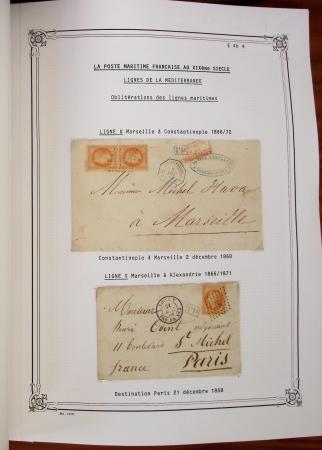 E 4b 4
LA POSTE MARITIME FRANCAISE AU XIXème SIECLE
LIGNES DE LA MEDITERRANEE
Oblitérations des lignes maritimes
LIGNE U Marseille à Constantinople 1866/72
Monsieur Michel Hava
à Marseille
Constantinople à Marseille 2 décembre 1868
LIGNE V Marseille à Alexandrie 1866/1871
Monsieur
Henri Coint négociant
11 boulevard St Michel
Paris
france
Destination Paris 21 décembre 1868